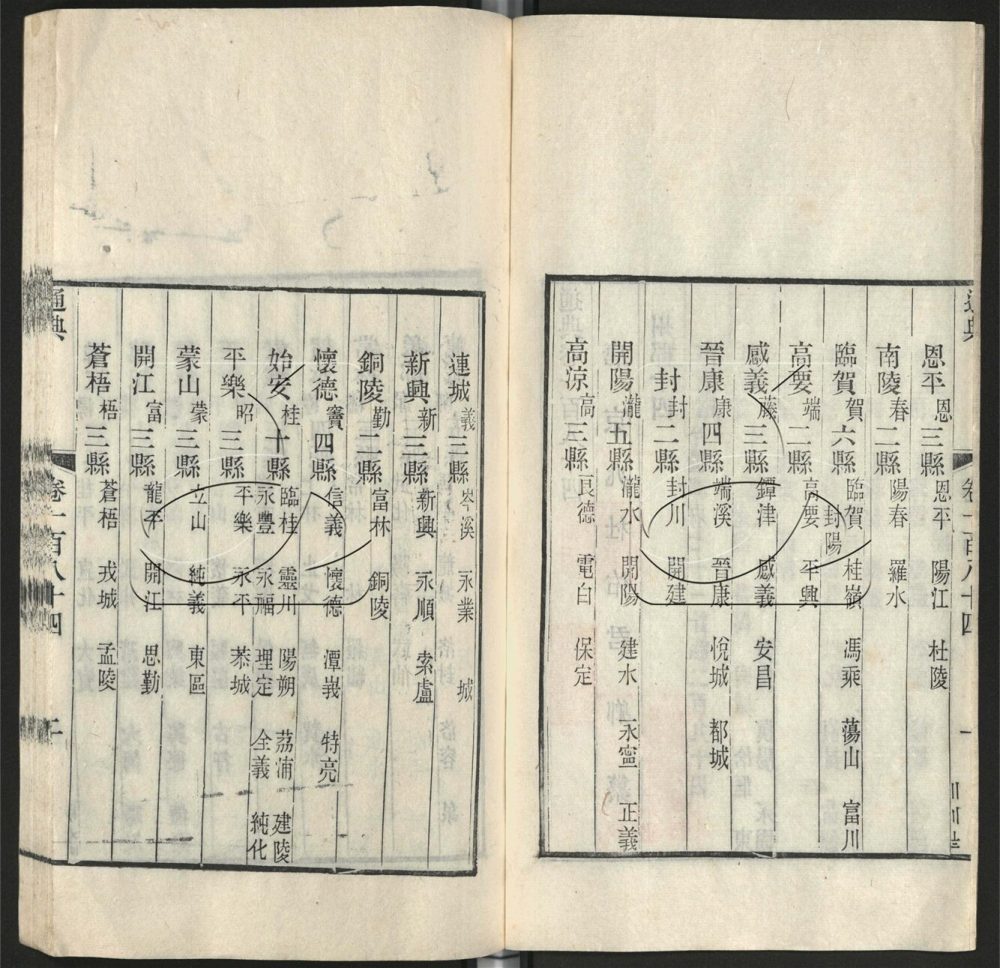 恩平恩三縣恩平 陽江 杜陵
南陵春二縣陽春 羅水
臨賀賀六縣臨賀 桂嶺 馮乘 蕩山 富川 封陽
高要端二縣高要 平興
感義藤三縣鐔津 感義 安昌
晉康康四縣端溪 晉康 悅城 都城
封封二縣封川 開建
開陽瀧五縣瀧水 開陽 建水 永寧 正義
高涼高三縣良德 電白 保定
通典
卷一百八十四
一
連城義三縣岑溪 永業 城
新興新三縣新興 永順 索盧
銅陵勤二縣富林 銅陵
懷德竇四縣信義 懷德 潭峩 特亮
始安桂十縣臨桂 靈川 陽朔 荔浦 建陵 永豐 永福 理定 全義 純化
平樂昭三縣平樂 永平 恭城
蒙山蒙三縣立山 純義 東區
開江富三縣龍平 開江 思勤
蒼梧梧三縣蒼梧 戎城 孟陵
通典
卷一百八十四
二